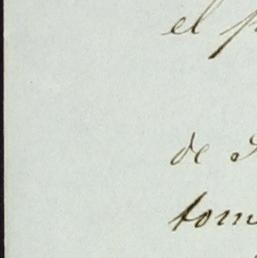 el
de
tom